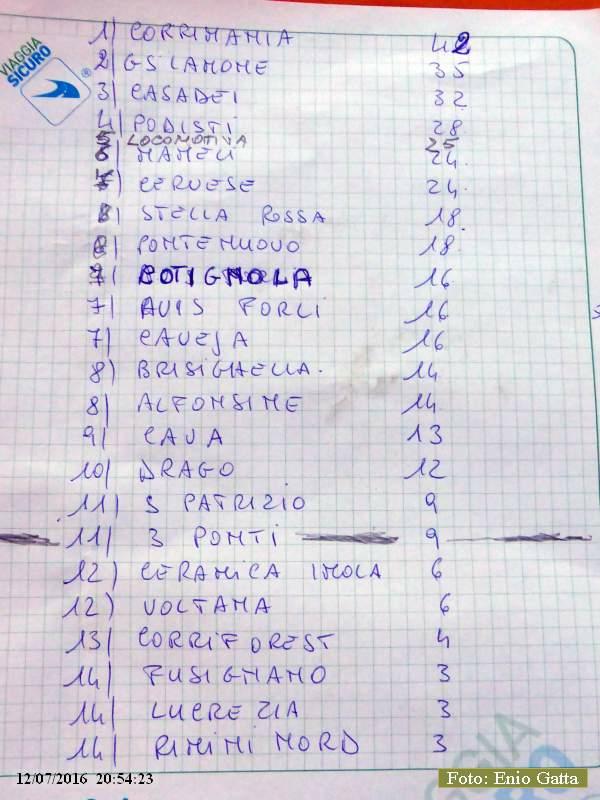 VIAGGIA
SICURO
®
1) CORRIMANIA 42
2) GS LAMONE 35
3) CASADEI 32
4) PODISTI 28
5 LOCOMOTIVA 25
6) MAMELI 24.
7) CERVESE 24.
8) STELLA ROSSA 18.
6) PONTENUOVO 18.
7) COTIGNOLA 16
7) AVIS FORLI 16
7) CAVEJA 16
8) BRISIGHELLA. 14
8) ALFONSINE 14
9) CAVA 13
10) DRAGO 12
11) S PATRIZIO 9
11) 3 PONTI 9
12) CERAMICA IMOLA 6
12) VOLTANA 6
13) CORRIFOREST 4
14) FUSIGNANO 3
14) LUCREZIA 3
14) RIMINI NORD 3
12/07/2016 20:54:23
Foto: Enio Gatta